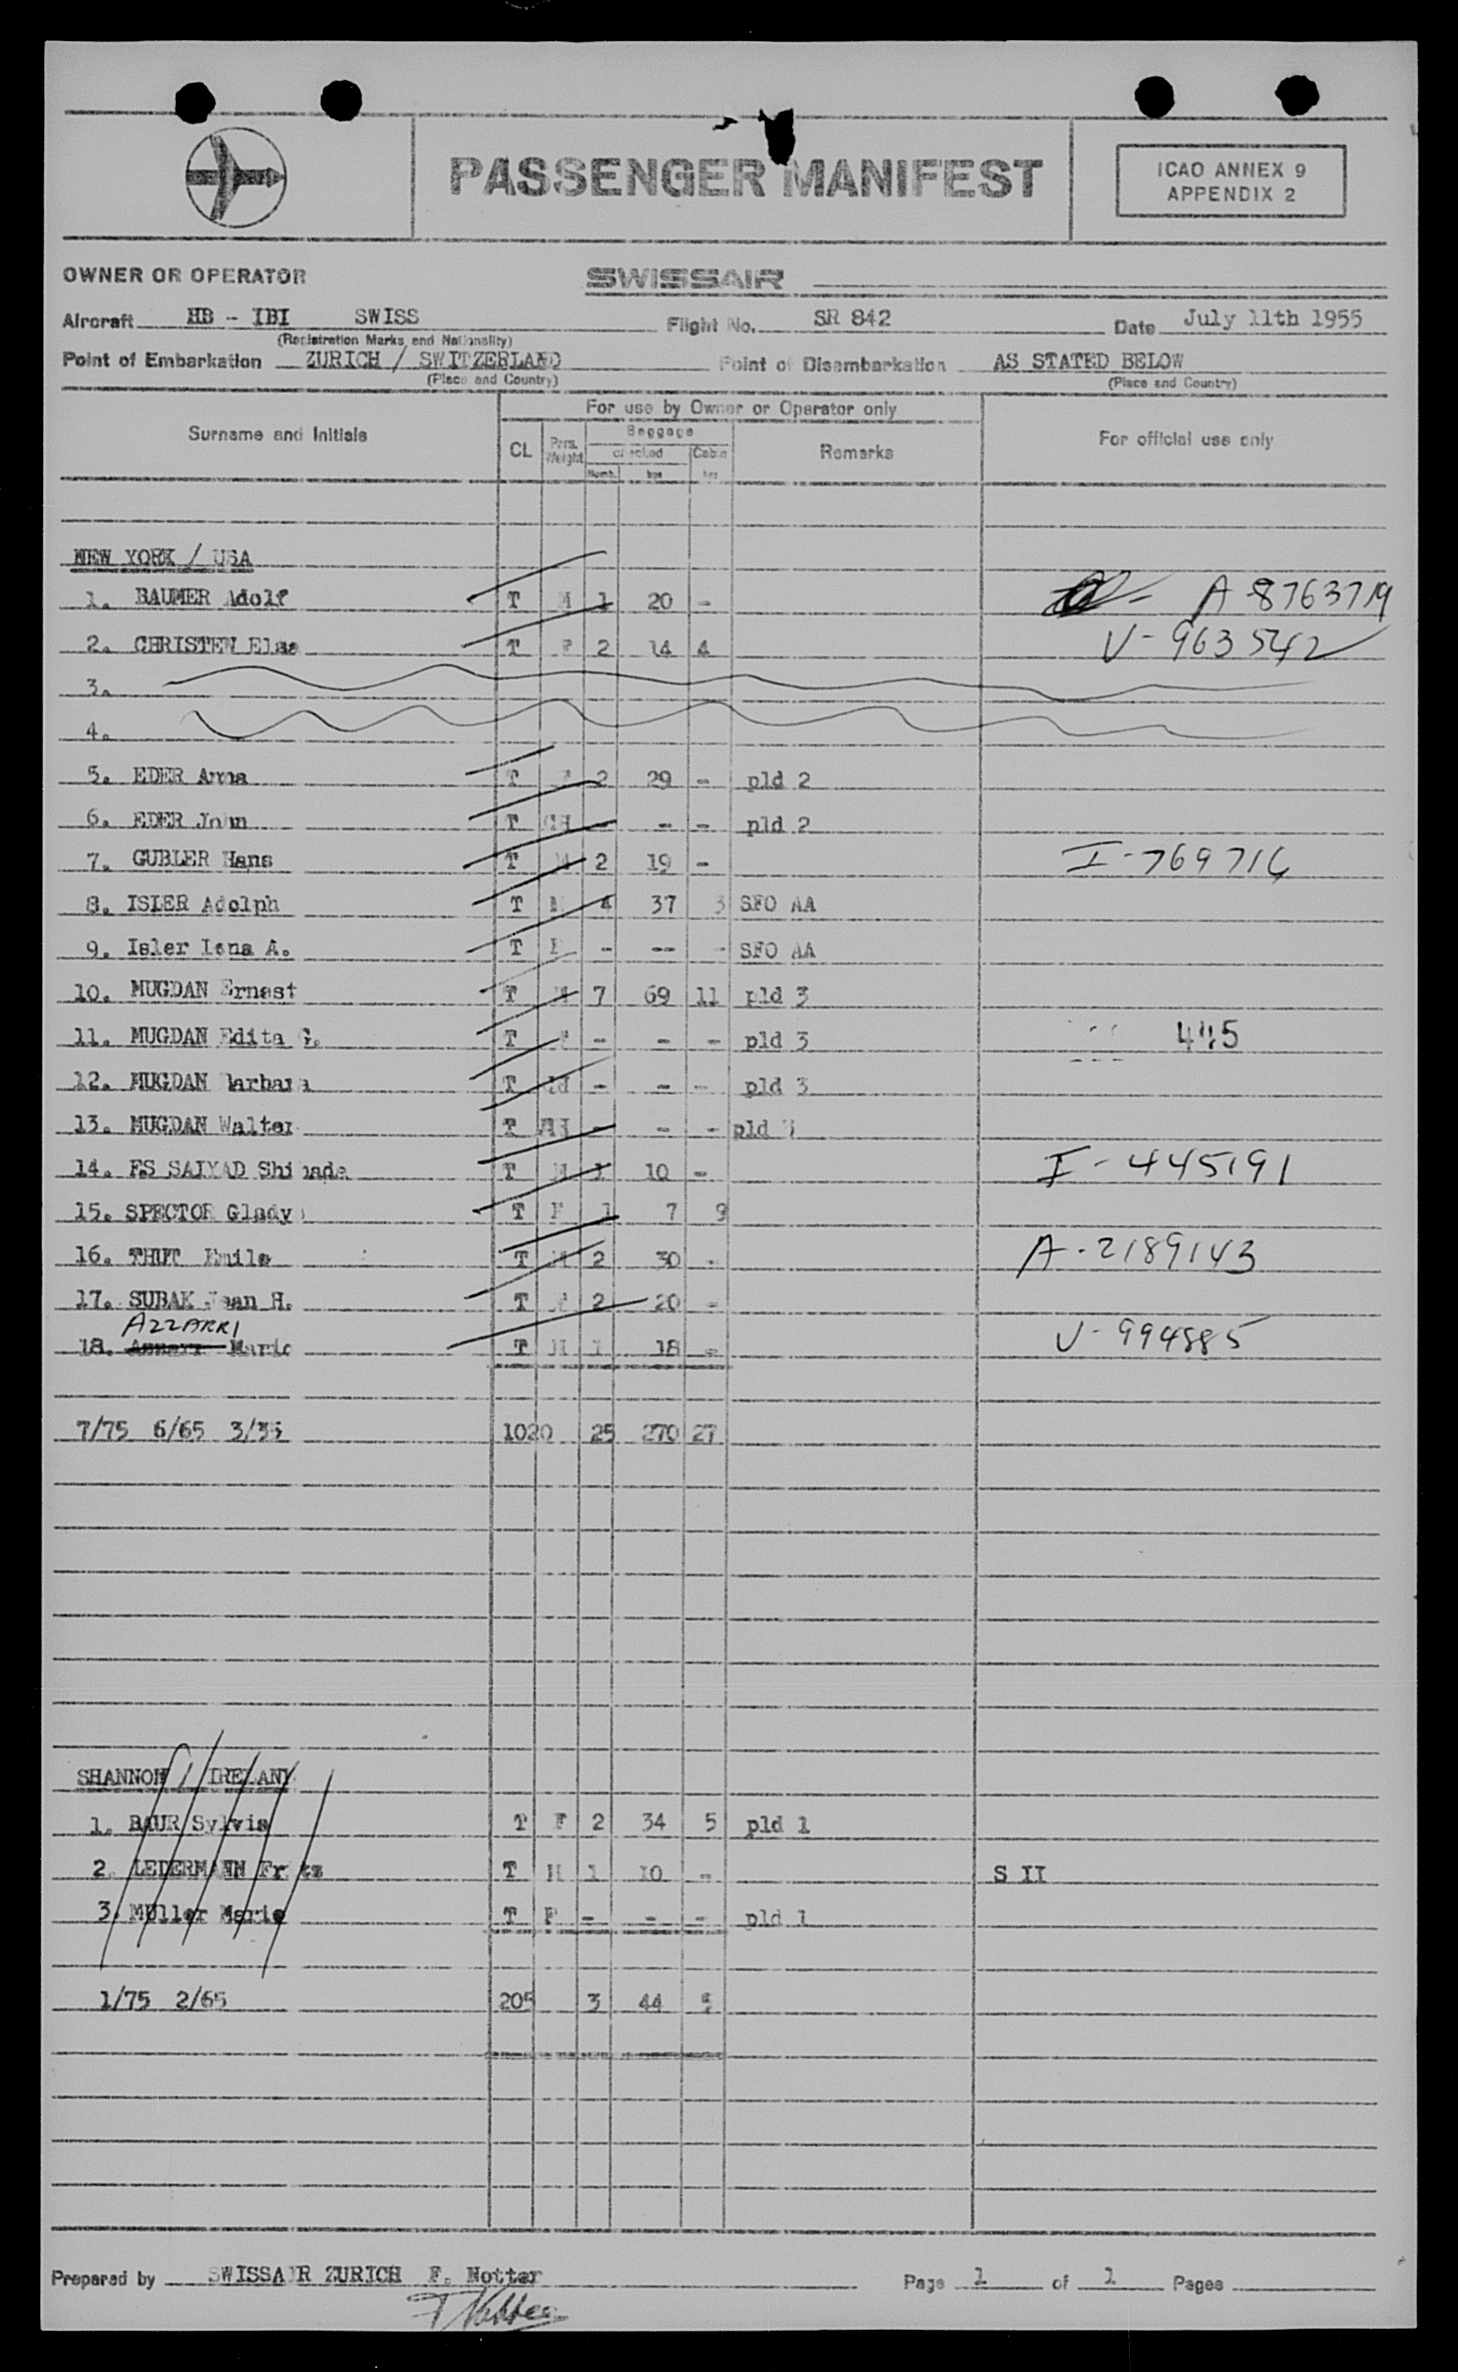 PASSENGER MANIFEST
ICAO ANNEX 9
APPENDIX 2
OWNER OR OPERATOR SWISSAIR
Aircraft HB - IBI SWISS Flight No. SR 842 Date July 11th 1955
(Registration Marks and Nationality)
Point of Embarkation ZURICH / SWITZERLAND Point of Disembarkation AS STATED BELOW
(Place and Country) (Place and Country)
For use by Owner or Operator only
Surname and Initials CL Pers. Weight Baggage checked Cabin Remarks For official use only
Numb. kgs kgs
NEW YORK / USA
1. BAUMER Adolf T M 1 20 - A-8763719
2. CHRISTEN Elsa T F 2 14 4 V-963542
3.
4.
5. EDER Anna T F 2 29 - pld 2
6. EDER John T CH - - - pld 2
7. GUBLER Hans T M 2 19 - I-769716
8. ISLER Adolph T M 4 37 3 SFO AA
9. Isler Lena A. T F - -- - SFO AA
10. MUGDAN Ernest T M 7 69 11 pld 3
11. MUGDAN Edita G. T F - - - pld 3 445
12. MUGDAN Barbara T - - - pld 3
13. MUGDAN Walter T CH - - - pld 3
14. ES SAIYAD Shihada T M 1 10 - I-445191
15. SPECTOR Gladys T F 1 7 9
16. THUT Emile T M 2 30 - A-2189143
17. SUBAK Jean H. T F 2 20 -
AZZARRI
18. Mario T M 1 18 - V-994885
7/75 6/65 3/35 1020 25 270 27
SHANNON / IRELAND
1. BAUR Sylvia T F 2 34 5 pld 1
2. LEDERMANN Fritz T M 1 10 - S II
3. Müller Marie T F - - - pld 1
1/75 2/65 205 3 44 5
Prepared by SWISSAIR ZURICH F. Notter Page 1 of 1 Pages
F. Notter